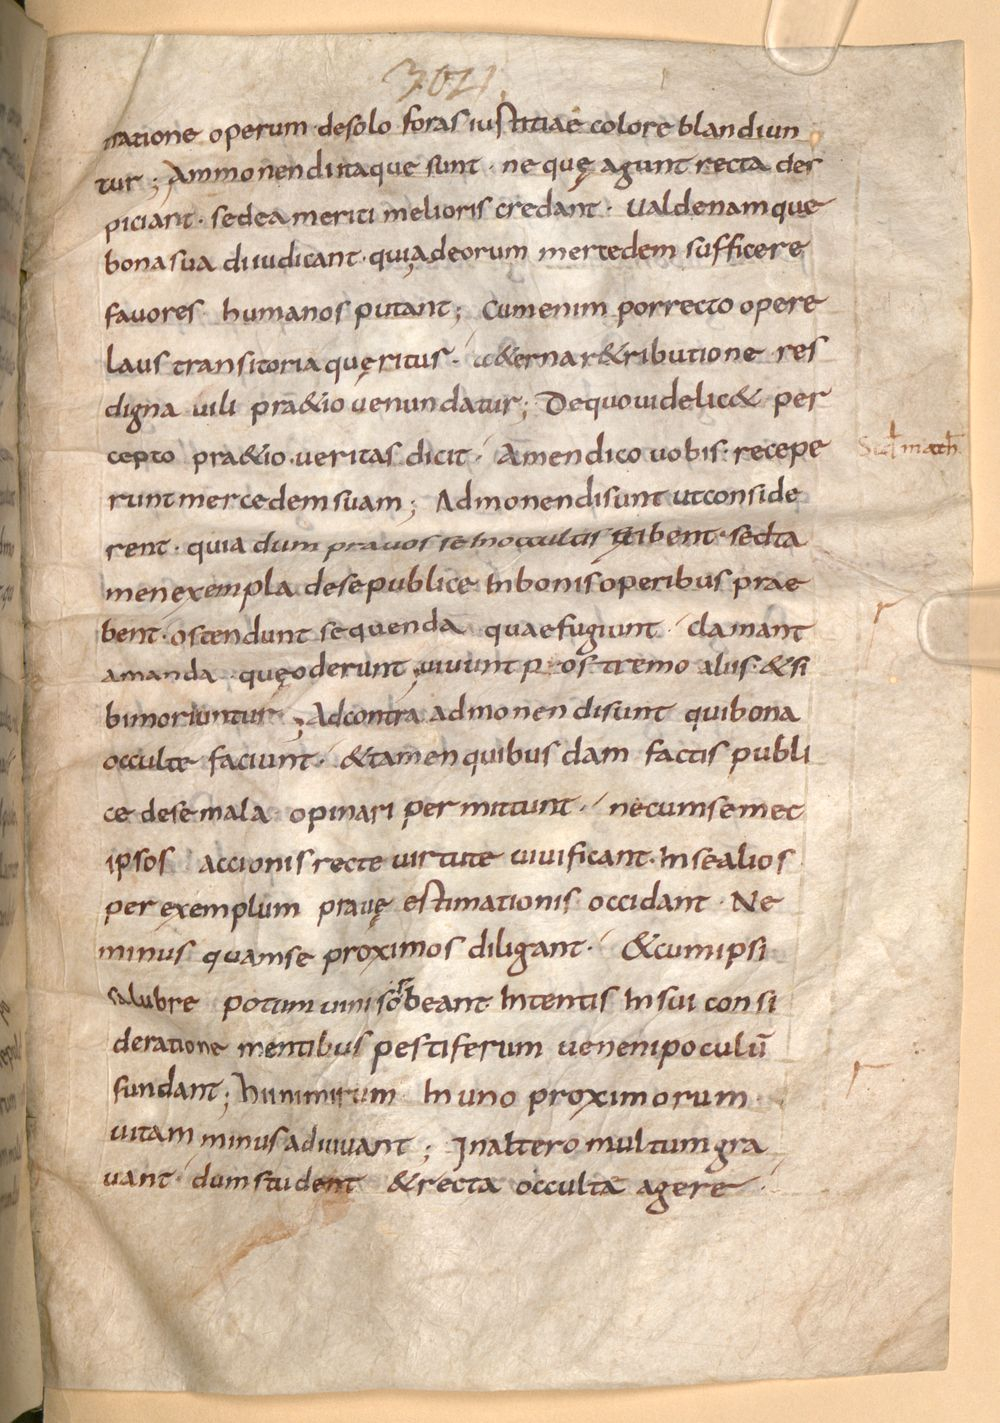 302
tratione operum desolo foras iustitiae colore blandiun
tur ; Ammonendi itaque sunt · ne quę agunt recta des
piciant · sed ea meriti melioris credant · valde namque
bona sua diiudicant · quia deorum mercedem sufficere
favores humanos putant ; Cum enim porrecto opere
laus transitoria quęritur · &erna r&ributione res
digna vili pr&io venundatur ; De quo videlic& per
cepto pra&io · veritas dicit · Amen dico vobis · recepe
Scd math
runt mercedem suam ; Admonendi sunt ut conside
rent · quia dum pravos se in occultis exibent · sed ta
men exempla de se publice in bonis operibus prae
bent · ostendunt sequenda quae fugiunt · clamant
amanda quę oderunt ; vivunt postremo aliis · & si
bi moriuntur ; Ad contra admonendi sunt qui bona
occulte faciunt · & tamen quibusdam factis publi
ce de se mala opinari permittunt · ne cum semet
ipsos accionis recte virtute vivificant · in se alios
per exemplum pravę estimationis occidant · Ne
minus quam se proximos diligant · & cum ipsi
salubre potum vini sorbeant intentis in sui consi
deratione mentibus pestiferum veneni poculū
fundant ; hi nimirum in uno proximorum
vitam minus adiuvant ; In altero multum gra
vant · dum student & recta occulta agere ·